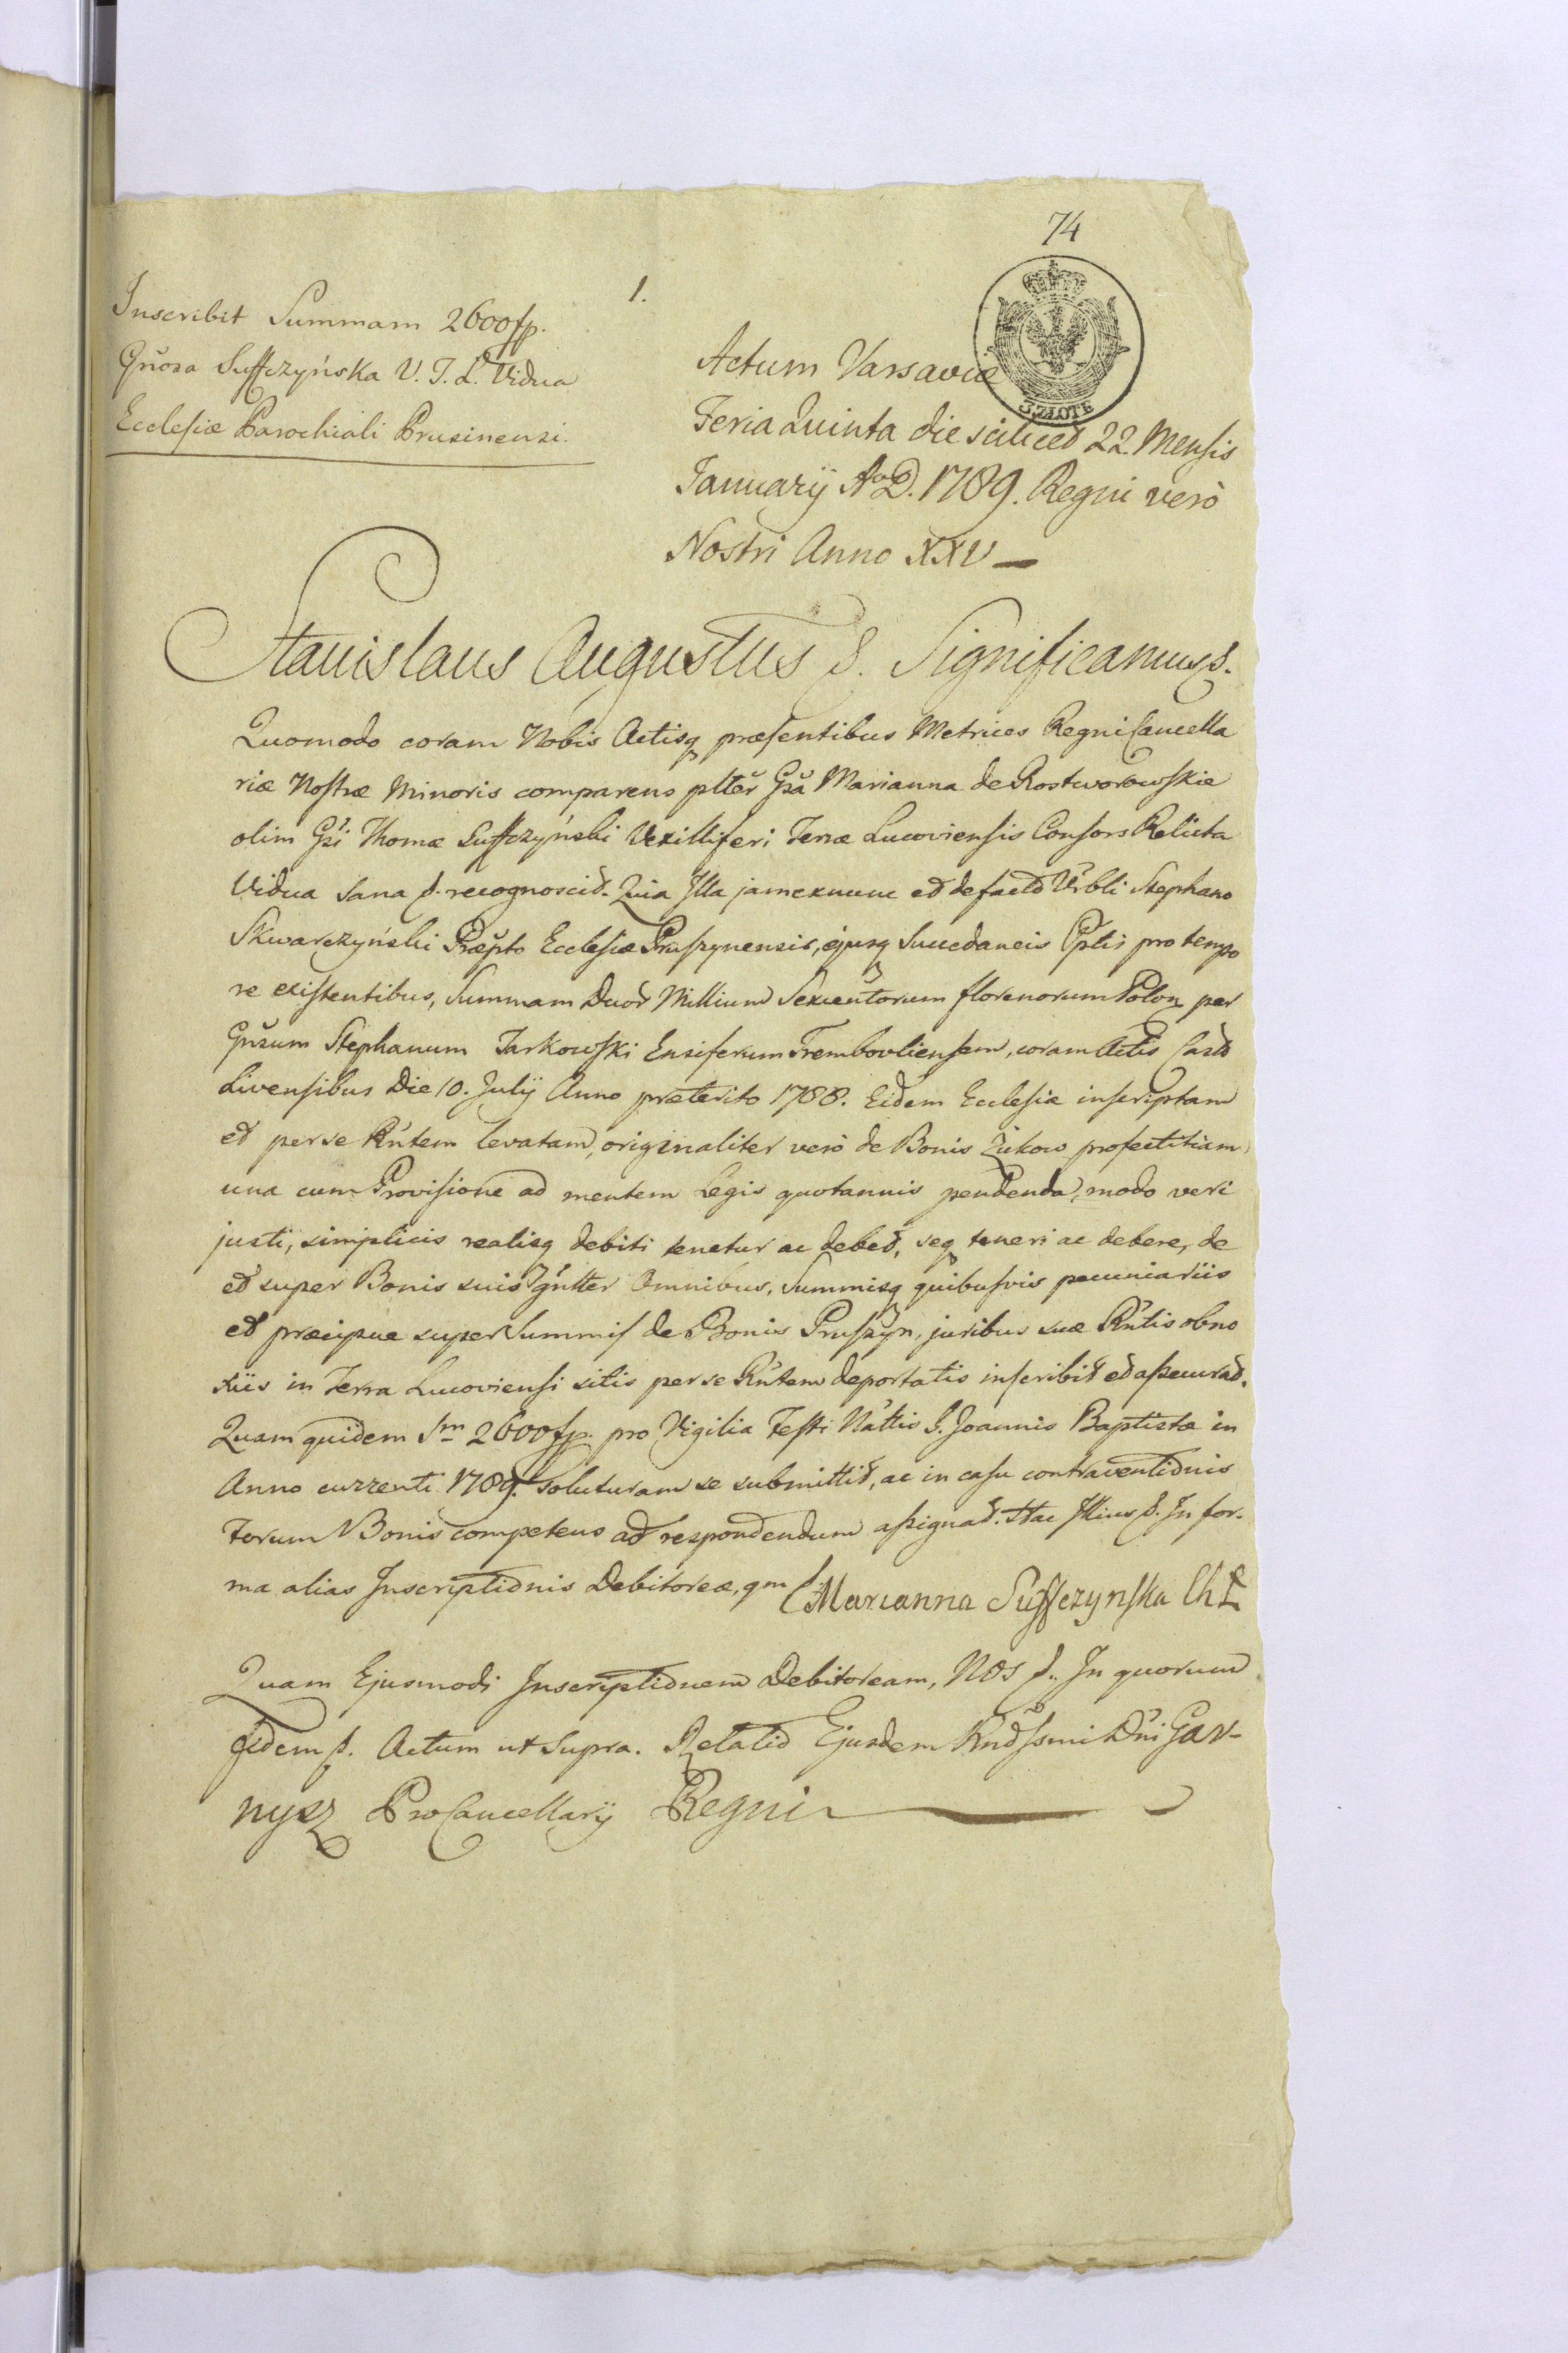 74
1.
Inscribit Summam 2600 fp.
Gnosa Suffczyńska V. T. L. Vidua
Ecclesiæ Parochiali Prusinensi.
3. ZŁOTE
Actum Varsaviæ
Feria Quinta die scilicet 22. Mensis
Januarÿ Ao D. 1789. Regni verò
Nostri Anno XXV —
Stanislaus Augustus &. Significamus &.
Quomodo coram Nobis Actisq præsentibus Metrices Regni Cancella
riæ Nostræ Minoris comparens pltĕr Gsă Marianna de Rostworowskie
olim Gsi Thomæ Suffczyński Vexilliferi Terræ Lucoviensis Consors Relicta
Vidua sana &. recognoscit. Quia Illa jam exnunc et defacto Vrbli Stephano
Skwarczyński Præpto Ecclesiæ Pruszynensis, ejusq Succedaneis Pptis pro tempo
re existentibus, Summam Duor Millium Sexcentorum florenorum Polon per
Gnsum Stephanum Jarkowski Ensiferum Trembovliensem, coram Actis Castr
Livensibus Die 10. Julÿ Anno præterito 1788. Eidem Ecclesiæ inscriptam
et per se Rntem levatam, originaliter verò de Bonis Żukow profectitiam
una cum Provisione ad mentem Legis quotannis pendenda, modo veri
justi, simplicis realisq debiti tenetur ac debet, seq teneri ac debere, de
et super Bonis suis gntter Omnibus, Summisq quibusvis pecuniariis
et præcipue super Summis de Bonis Pruszyn, juribus suæ Rntis obno
xiis in Terra Lucoviensi sitis per se Rntem deportatis inscribit et assecurat.
Quam quidem Sm 2600 fp. pro Vigilia Festi Nattis S. Joannis Baptistæ in
Anno currenti 1789. soluturam se submittit, ac in casu contraventionis
Forum Bonis competens ad respondendum assignat. Hac Illius &. In for-
ma alias Inscriptionis Debitoreæ, qm Marianna Suffczynska Ch Ł
Quam Ejusmodi Inscriptionem Debitoream, Nos &. In quorum
fidem &. Actum ut Supra. Relatio Ejusdem Rndssmi Dni Gar-
nysz ProCancellarÿ Regni